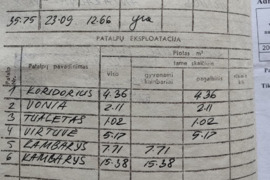 35.75 23-09 12.66
PATALPŲ EKSPLOATACIJA
Plotas m²
Patalpų pavadinimas
tame skaičiuje
viso
gyvenami kambariai
pagalbinis
1 KORIDORIUS 4.36 4.36
2 VONIA 2.11 2.11
3 TUALETAS 1.02 1.02
4 VIRTUVĖ 5.17 5.17
5 KAMBARYS 7.71 7.71
6 KAMBARYS 15.38 15.38